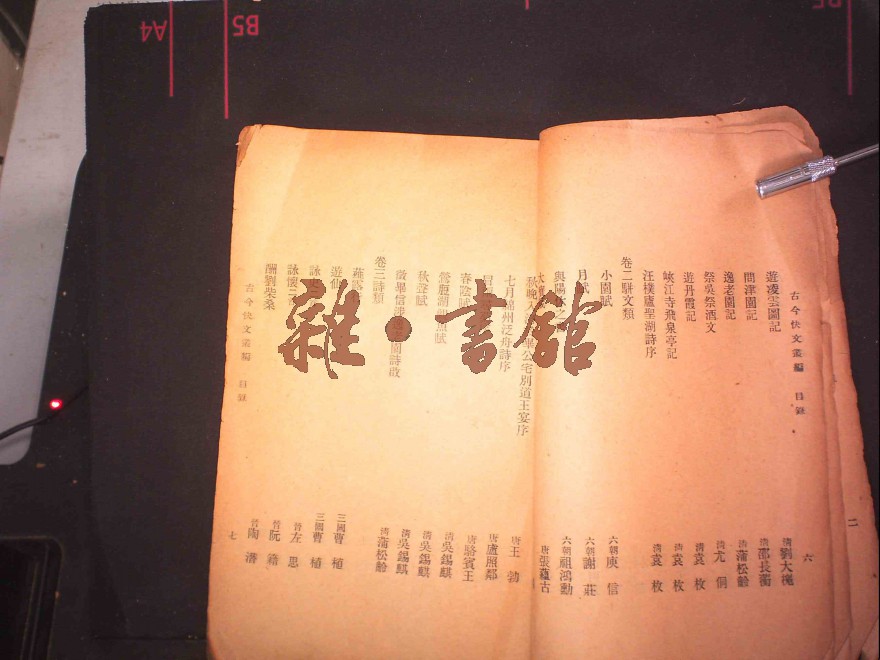 古今快文叢編 目錄 六
遊凌雲圖記 清劉大櫆
問津園記 清邵長蘅
逸老園記 清蒲松齡
祭吳祭酒文 清尤侗
遊丹霞記 清袁枚
峽江寺飛泉亭記 清袁枚
汪樸廬聖湖詩序 清袁枚
卷二駢文類
小園賦 六朝庾信
月賦 六朝謝莊
與陽休之 六朝祖鴻勳
大 唐張蘊古
秋晚入 公宅別道王宴序 唐王勃
七月綿州泛舟詩序 唐盧照鄰
唐駱賓王
春陰賦 清吳錫麒
鶯脰湖 照賦 清吳錫麒
秋聲賦 清吳錫麒
徵畢信 園詩啟 清蒲松齡
卷三詩類
薤露 三國曹植
遊仙 三國曹植
詠史 晉左思
詠懷 晉阮籍
酬劉柴桑 晉陶潛
古今快文叢編 目錄 七
二
雜·書館
A4
B5